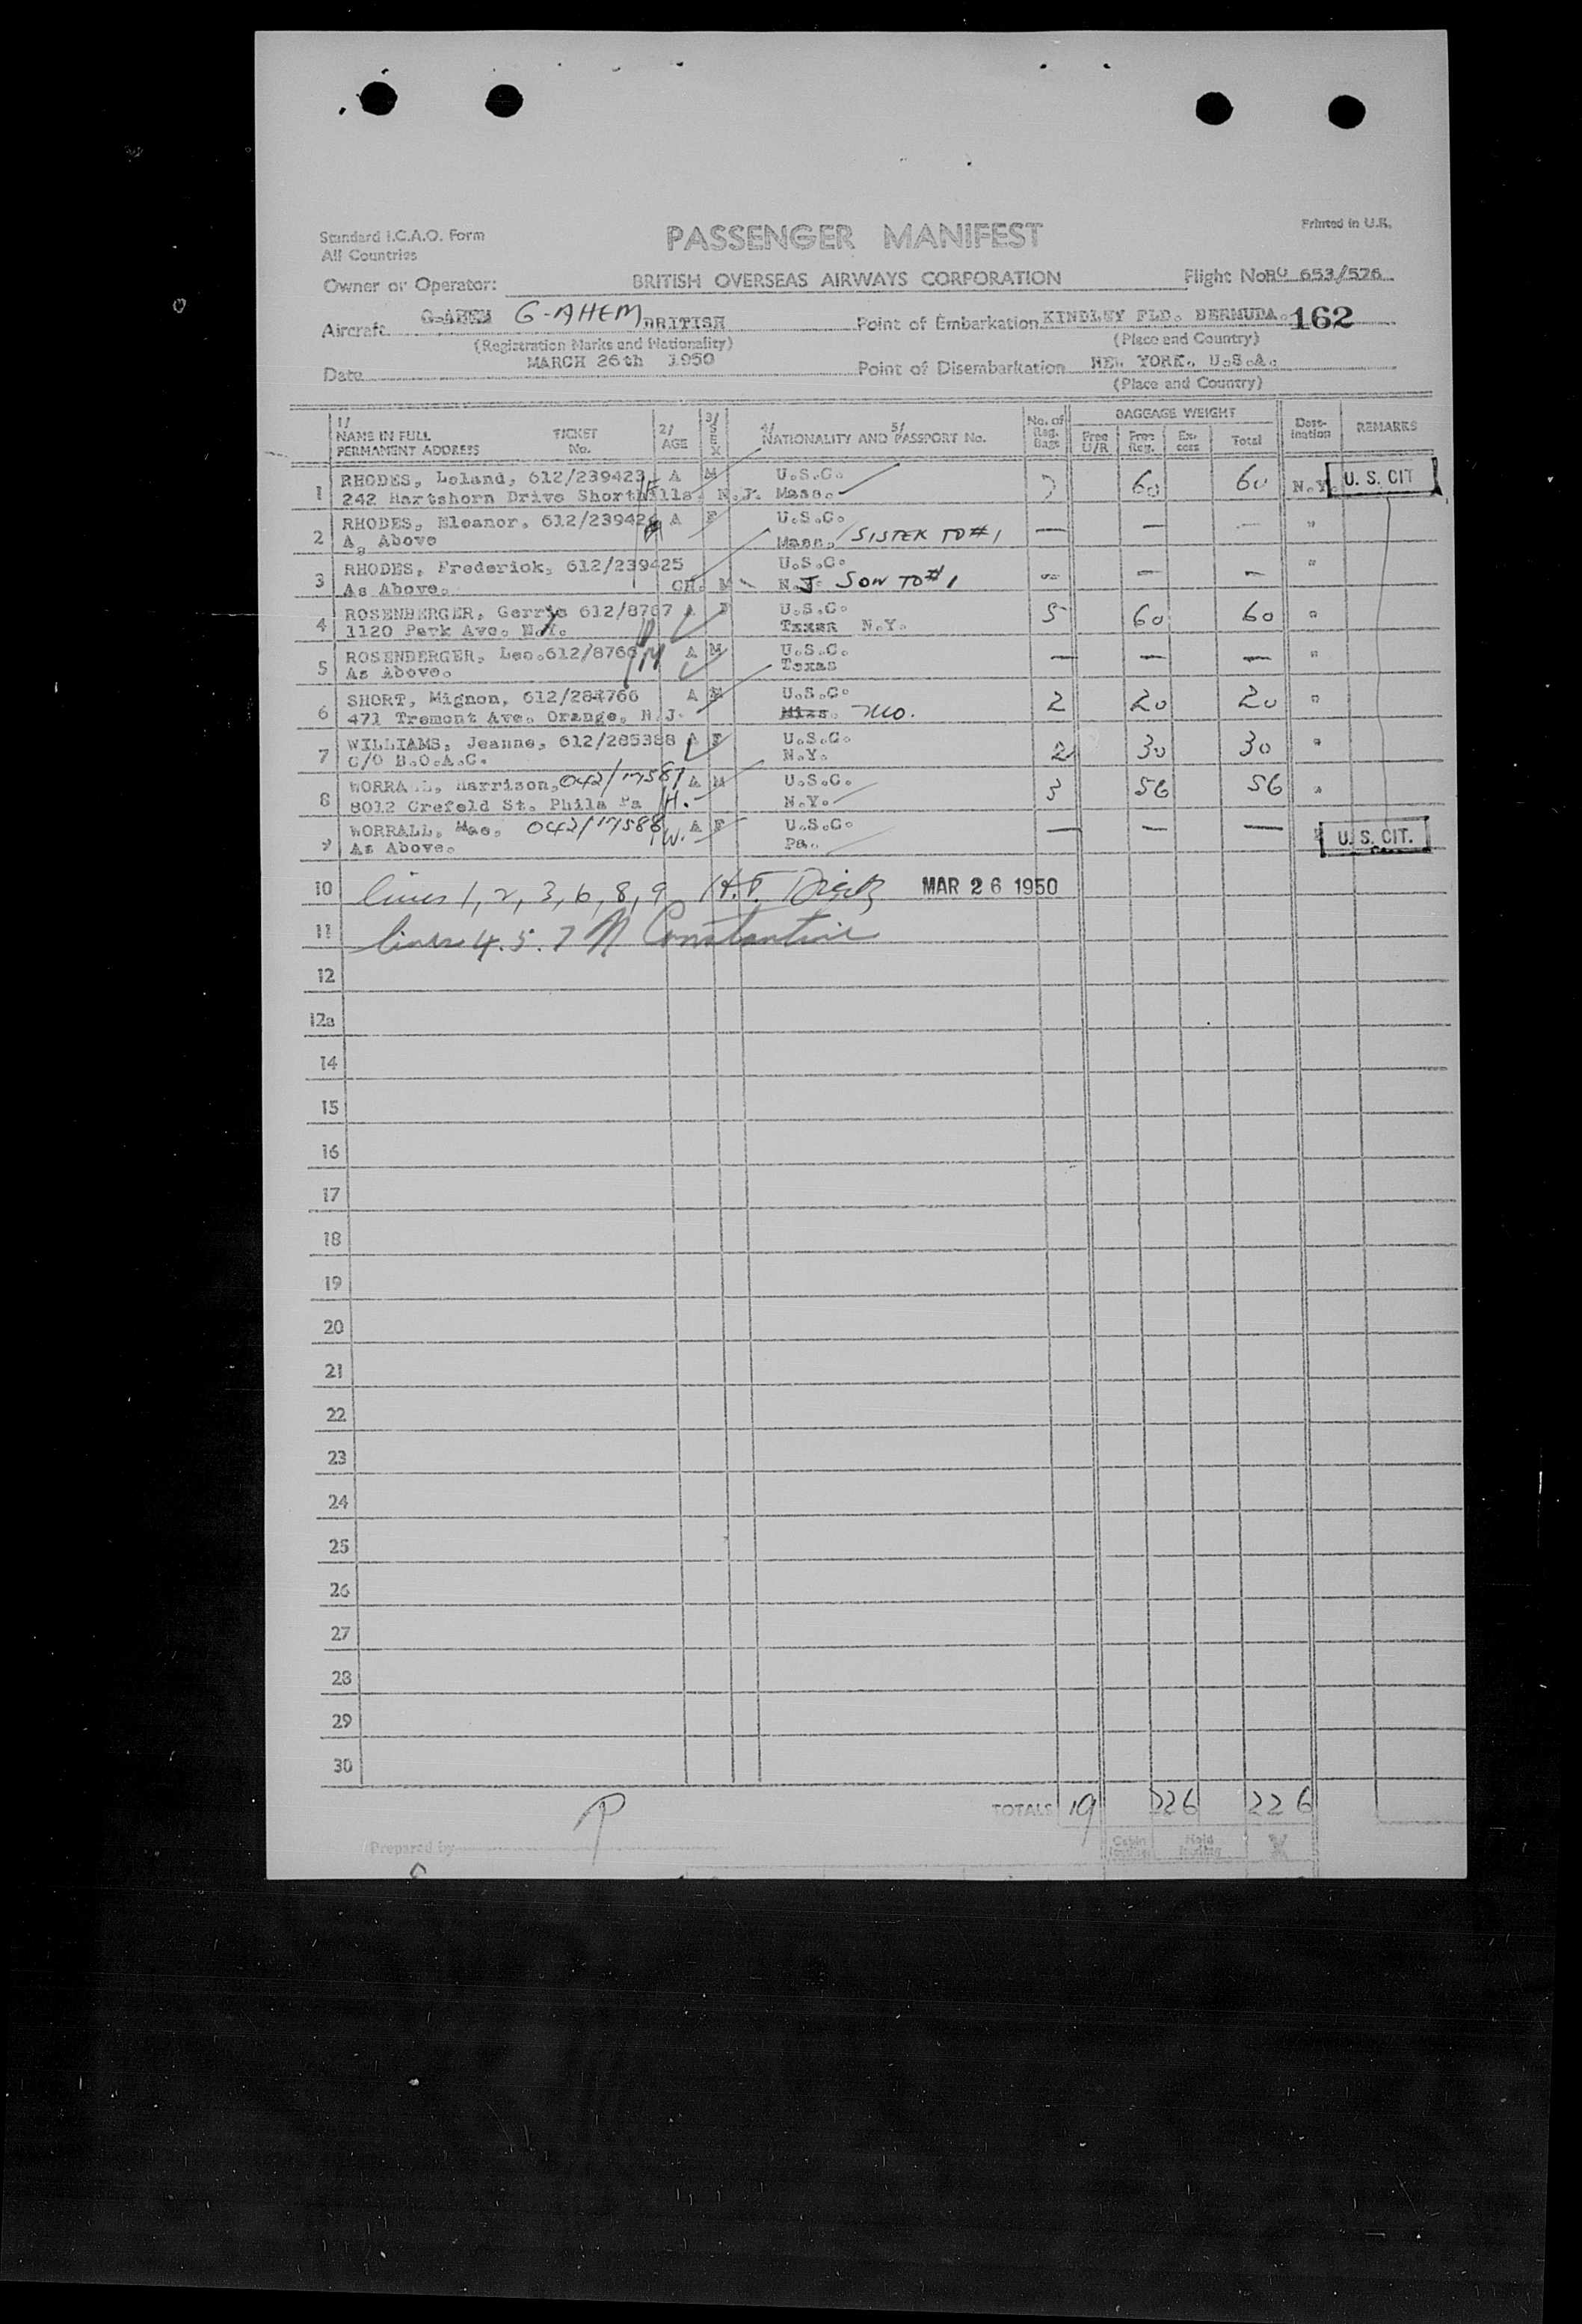 Standard I.C.A.O. Form
All Countries
PASSENGER MANIFEST
Printed in U.K.
Owner or Operator: BRITISH OVERSEAS AIRWAYS CORPORATION Flight No. 653/526
Aircraft G-AHEM G-AHEM BRITISH Point of Embarkation KINDLEY FLD. BERMUDA. 162
(Registration Marks and Nationality) (Place and Country)
Date MARCH 26th 1950 Point of Disembarkation NEW YORK. U.S.A.
(Place and Country)
1/ NAME IN FULL PERMANENT ADDRESS TICKET No. 2/ AGE 3/ SEX 4/ 5/ NATIONALITY AND PASSPORT No. No. of Reg. Bags BAGGAGE WEIGHT Free U/R Free Reg. Ex-cess Total Dest-ination REMARKS
1 RHODES, Leland, 612/239423 A M U.S.C. 60 60 N.Y. U. S. CIT
242 Hartshorn Drive Shorthills N.J. Mass.
2 RHODES, Eleanor, 612/239424 A F U.S.C. — — — "
As Above Mass. SISTER TO #1
3 RHODES, Frederick, 612/239425 U.S.C. "
As Above. CH. M N.J. SON TO #1 — — —
4 ROSENBERGER, Gerry 612/8767 A F U.S.C. 5 60 60 "
1120 Park Ave. N.Y. Texas N.Y.
5 ROSENBERGER, Leo. 612/8766 A M U.S.C. — — — "
As Above. Texas
6 SHORT, Mignon, 612/284766 A U.S.C. 2 20 20 "
471 Tremont Ave. Orange, N.J. Miss. Mo.
7 WILLIAMS, Jeanne, 612/285388 A F U.S.C. 2 30 30 "
C/O B.O.A.C. N.Y.
8 WORRALL, Harrison, 042/17587 A M U.S.C. 3 56 56 "
8012 Crefeld St. Phila Pa H. N.Y.
9 WORRALL, Mae, 042/17588 A F U.S.C. — — — " U. S. CIT.
As Above. W. Pa.
10 lines 1, 2, 3, 6, 8, 9 H.T. MAR 26 1950
11 lines 4. 5. 7 N Constantine
12
12a
14
15
16
17
18
19
20
21
22
23
24
25
26
27
28
29
30
TOTALS 19 226 226
Prepared by
Cabin Hold X